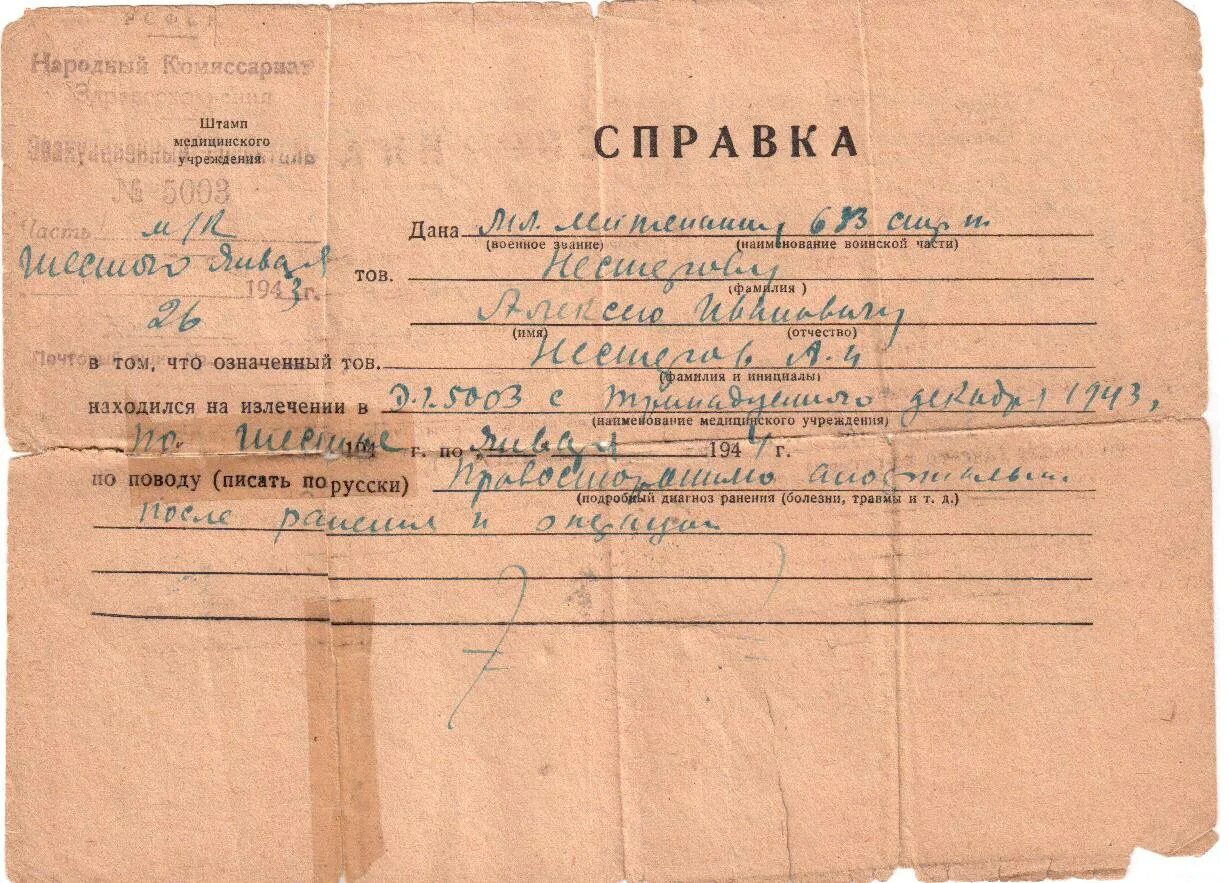 РСФСР
Народный Комиссариат
Здравоохранения
Штамп
медицинского
учреждения
Эвакуационный
№ 5003
Часть м/к
шестого января
1943 г.
26
СПРАВКА
Дана Мл. лейтенанту 633
(военное звание) (наименование воинской части)
тов. Нестерову
(фамилия)
Алексею Ивановичу
(имя) (отчество)
в том, что означенный тов. Нестеров А. И
(фамилия и инициалы)
находился на излечении в Э.Г. 5003 с тринадцатого декабря 1943,
(наименование медицинского учреждения)
по шестое 194 г. по „ января 1944 г.
по поводу (писать по русски)
(подробный диагноз ранения (болезни, травмы и т. д.)
после ранения и операции